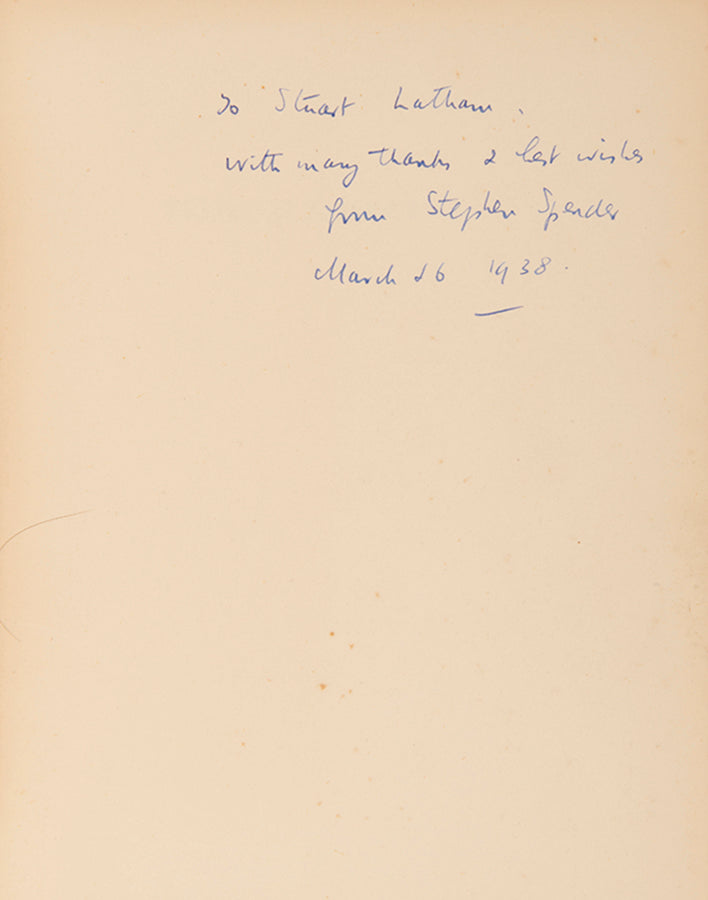 To Stuart Latham.
with many thanks & best wishes
from Stephen Spender
March 26 1938.